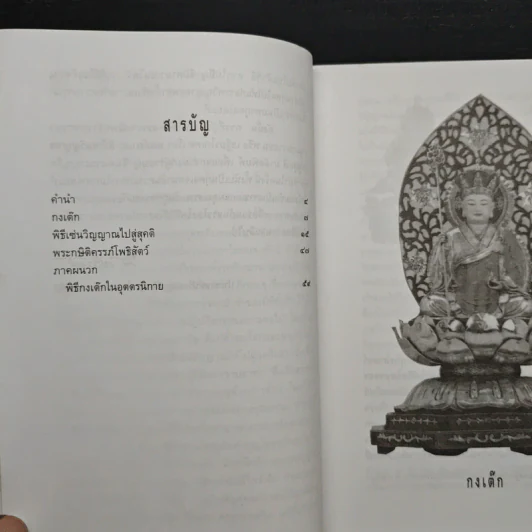 สารบัญ
คำนำ ๔
กงเต๊ก ๗
พิธีเซ่นวิญญาณไปสู่สุคติ ๑๕
พระกษิติครรภ์โพธิสัตว์ ๔๗
ภาคผนวก
พิธีกงเต๊กในอุตตรนิกาย ๕๔
กงเต๊ก